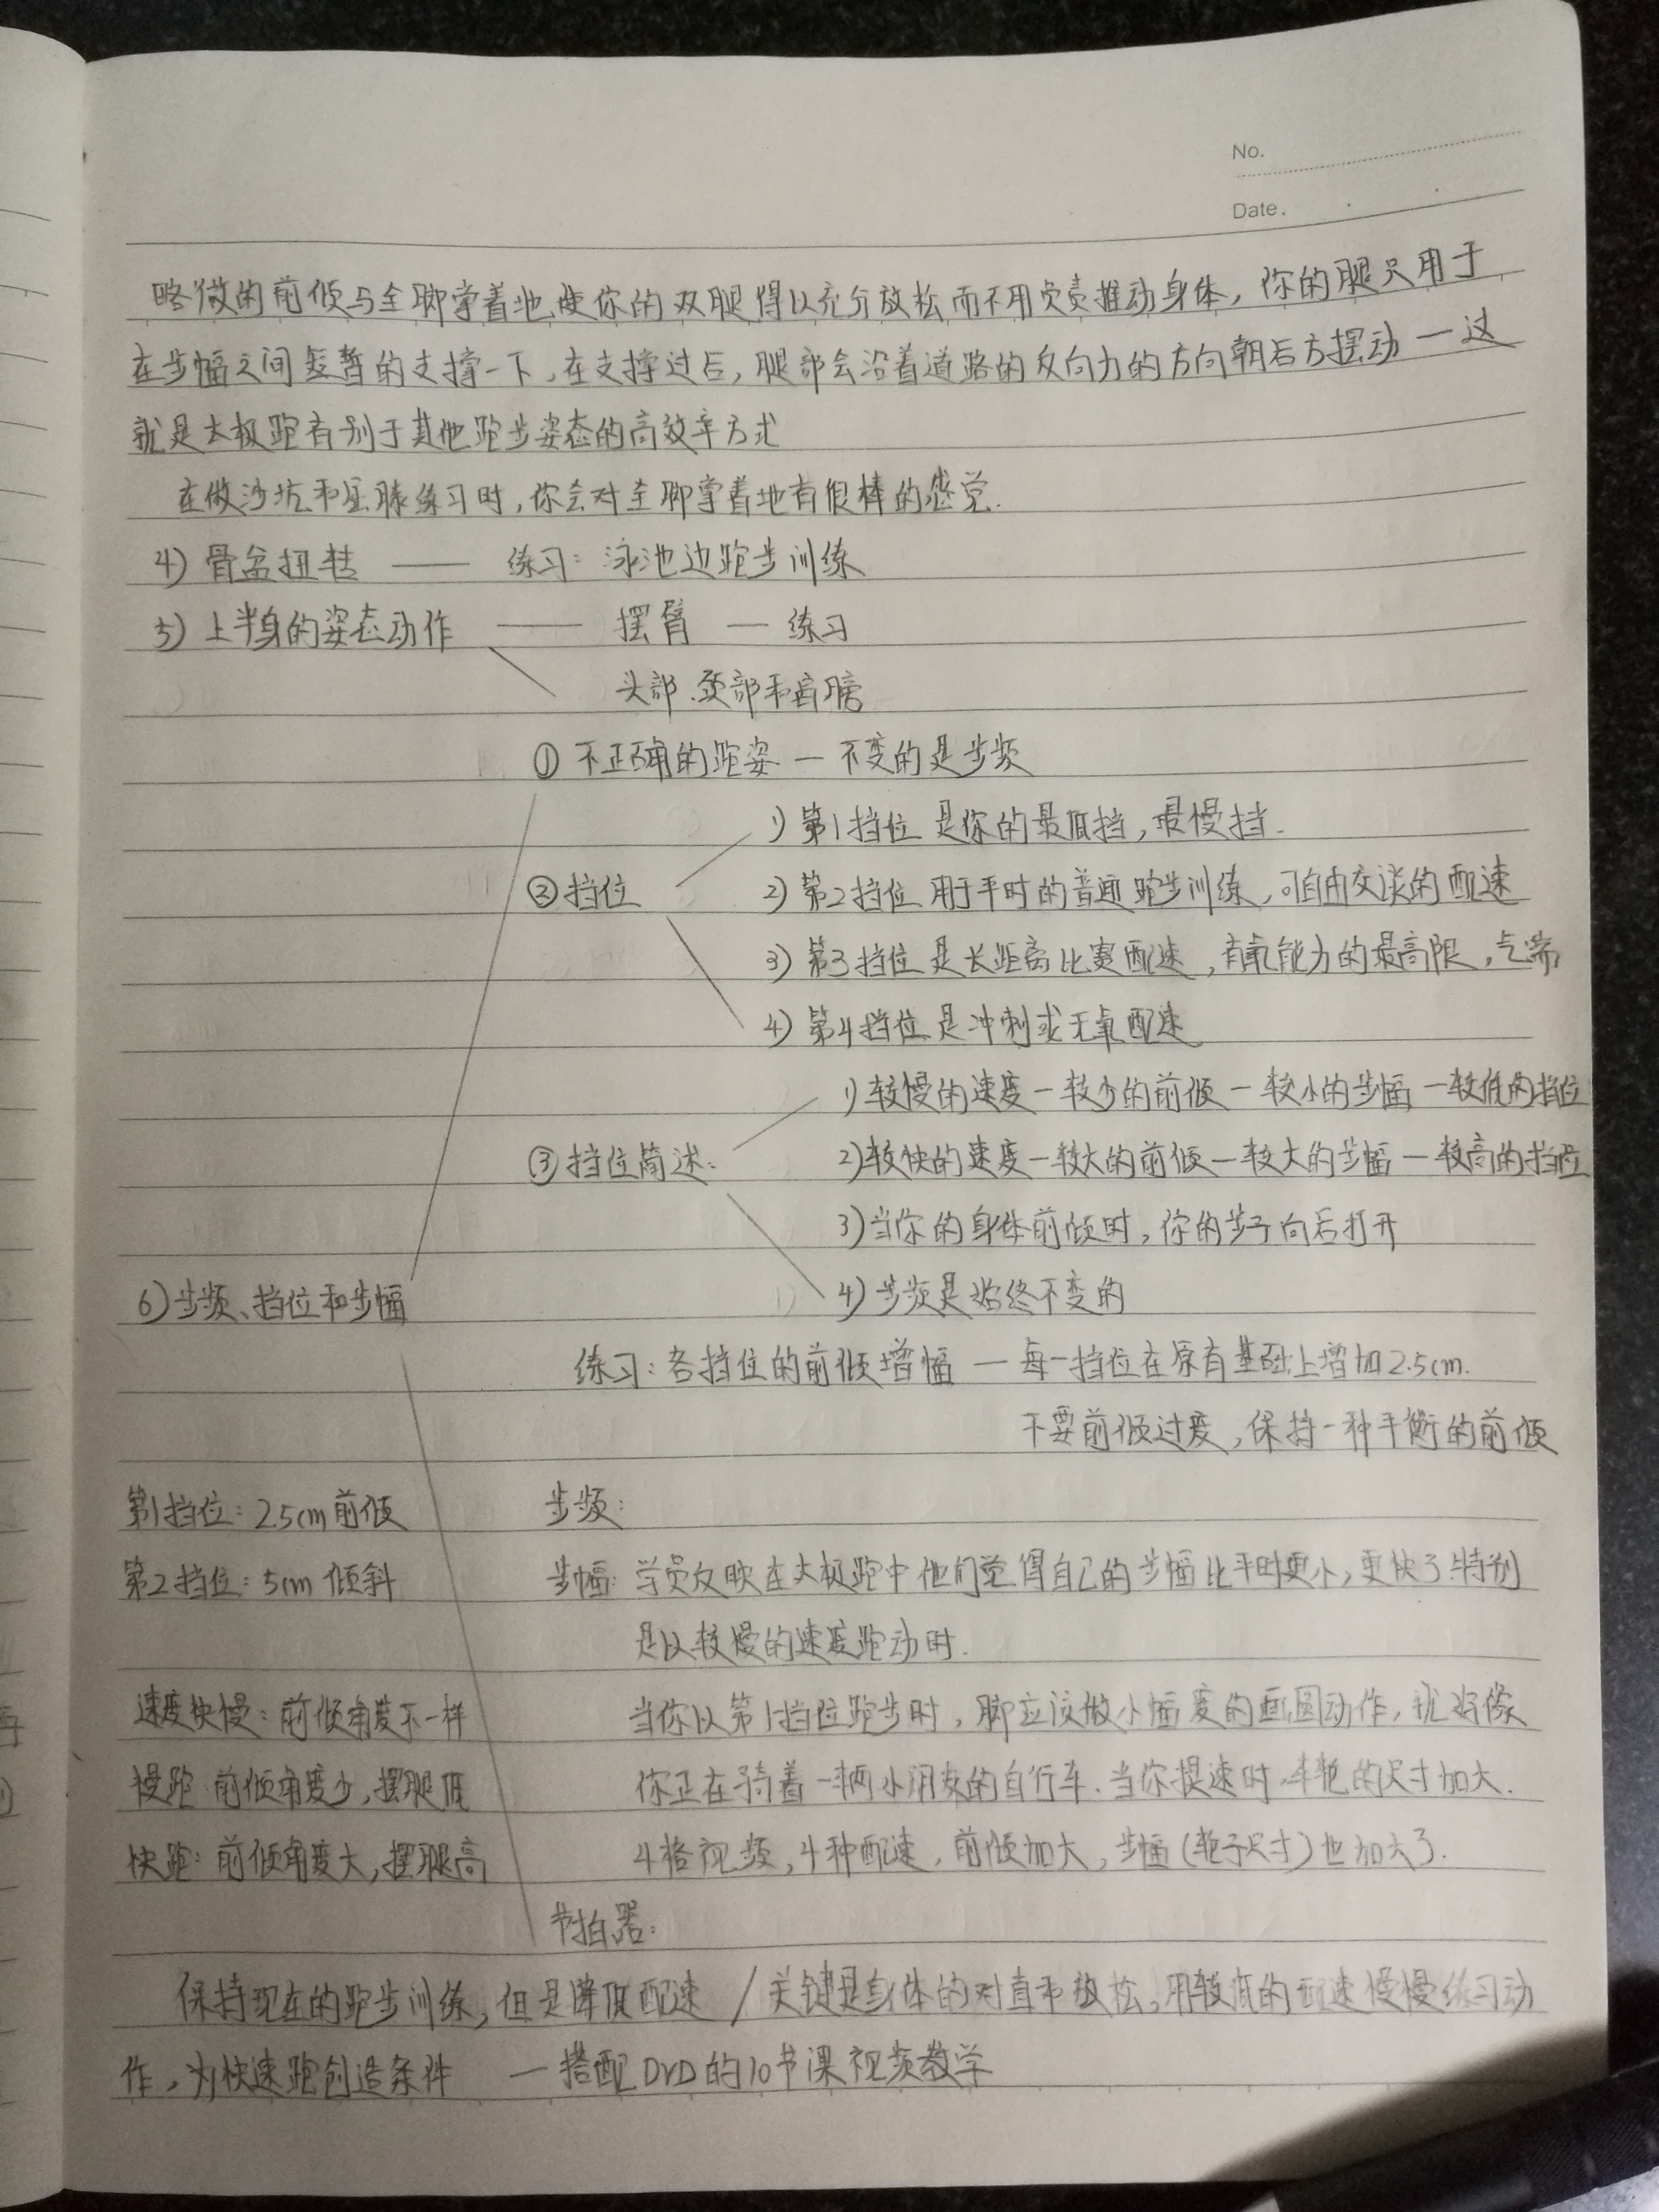 No.
Date.
略微的前倾与全脚掌着地,使你的双腿得以充分放松而不用负责推动身体,你的腿只用于
在步幅之间短暂的支撑一下,在支撑过后,腿部会沿着道路的反向力的方向朝后方摆动—这
就是太极跑有别于其他跑步姿态的高效率方式
在做沙坑和屈膝练习时,你会对全脚掌着地有很棒的感觉.
4) 骨盆扭转 —— 练习: 泳池边跑步训练
5) 上半身的姿态动作 —— 摆臂 — 练习
头部、颈部和肩膀
① 不正确的跑姿 — 不变的是步频
1) 第1挡位 是你的最低挡,最慢挡.
② 挡位 2) 第2挡位 用于平时的普通跑步训练,可自由交谈的配速
3) 第3挡位 是长距离比赛配速,有氧能力的最高限,气喘
4) 第4挡位 是冲刺或无氧配速
1) 较慢的速度—较少的前倾—较小的步幅—较低的挡位
③ 挡位简述: 2) 较快的速度—较大的前倾—较大的步幅—较高的挡位
3) 当你的身体前倾时,你的步子向后打开
6) 步频、挡位和步幅 4) 步频是始终不变的
练习: 各挡位的前倾增幅 — 每一挡位在原有基础上增加2.5cm.
不要前倾过度,保持一种平衡的前倾
第1挡位: 2.5cm前倾 步频:
第2挡位: 5cm 倾斜 步幅: 学员反映在太极跑中他们觉得自己的步幅比平时更小,更快了.特别
是以较慢的速度跑动时.
速度快慢: 前倾角度不一样 当你以第1挡位跑步时,脚应该做小幅度的画圆动作,就好像
慢跑: 前倾角度少,摆腿低 你正在骑着一辆小朋友的自行车.当你提速时,车轮的尺寸加大.
快跑: 前倾角度大,摆腿高 4格视频,4种配速,前倾加大,步幅(轮子尺寸)也加大了.
节拍器:
保持现在的跑步训练,但是降低配速 / 关键是身体的对直和放松,用较低的配速慢慢练习动
作,为快速跑创造条件 — 搭配DVD的10节课视频教学